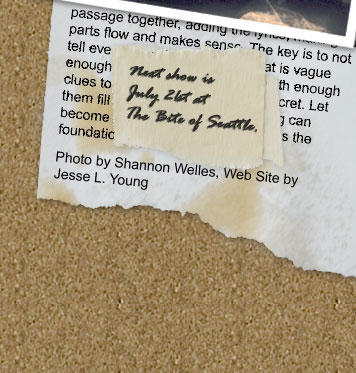 passage together, adding the lyrics,
parts flow and makes sense. The key is to not
tell eve at is vague
enough th enough
clues to cret. Let
them fill g can
become s the
foundatio
Next show is
July 21st at
The Bite of Seattle.
Photo by Shannon Welles, Web Site by
Jesse L. Young